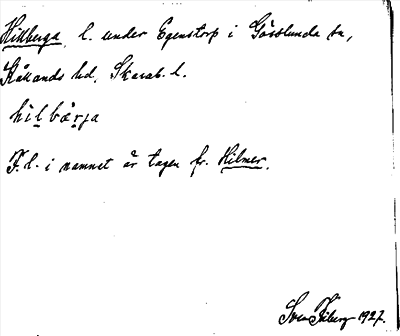 Hilberga, l. under Egenstorp i Gösslunda sn,
Kållands hd, Skarab. l.
hilbärja
F. l. i namnet är tagen fr. Hilmer.
Sven Fiberg 1927.